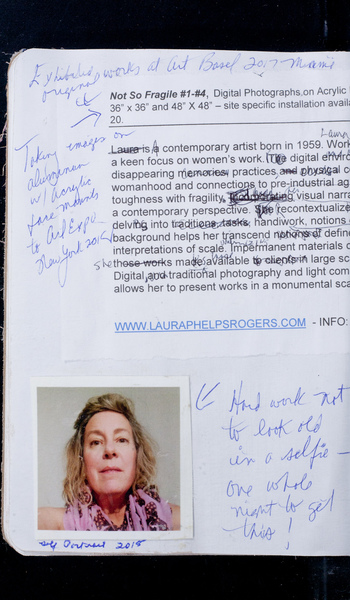 Exhibited works at Art Basel 2017 Miami
original
Not So Fragile #1-#4, Digital Photographs, on Acrylic
36" x 36" and 48" X 48" – site specific installation availa
20.
Laura
Taking images on
Aluminum
w/ Acrylic
face mounts
to Art Expo
New York 2015
Laura is a contemporary artist born in 1959. Work
a keen focus on women's work. The digital
disappearing memories, practices, and physical
womanhood and connections to pre-industrial ag
toughness with fragility, visual narra
a contemporary perspective. She recontextualize
delving into traditions, tasks, handiwork, notions
background helps her transcend defin
interpretations of scale. Impermanent materials
she those works made available to clients in large sc
Digital and traditional photography and light com
allows her to present works in a monumental sca
WWW.LAURAPHELPSROGERS.COM - INFO:
Hard work not
to look old
in a selfie -
one whole
night to get
this!
Self Portrait 2015